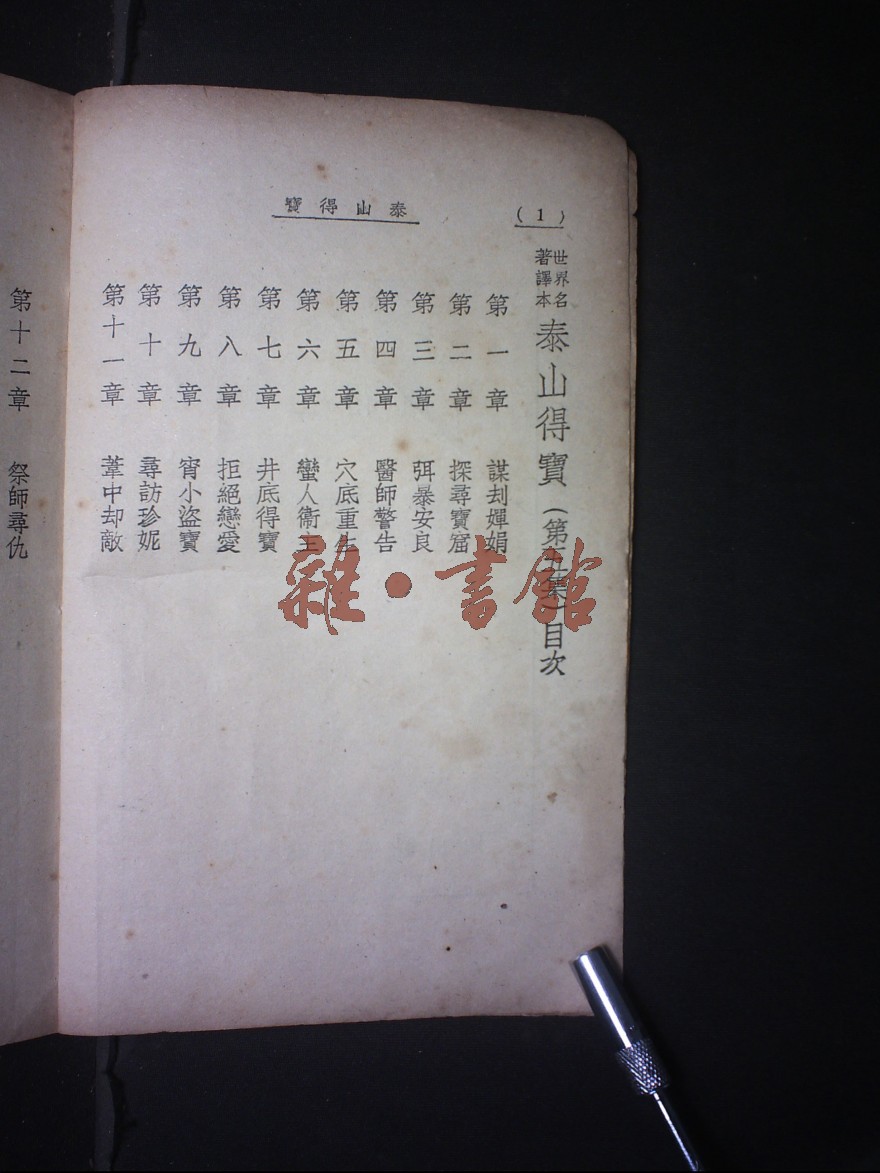 泰山得寶
（1）
世界名著譯本 泰山得寶（第五集）目次
第一章 謀刦嬋娟
第二章 探尋寶窟
第三章 弭暴安良
第四章 醫師警告
第五章 穴底重生
第六章 蠻人衞主
第七章 井底得寶
第八章 拒絕戀愛
第九章 宵小盜寶
第十章 尋訪珍妮
第十一章 葦中却敵
第十二章 祭師尋仇
雜·書館